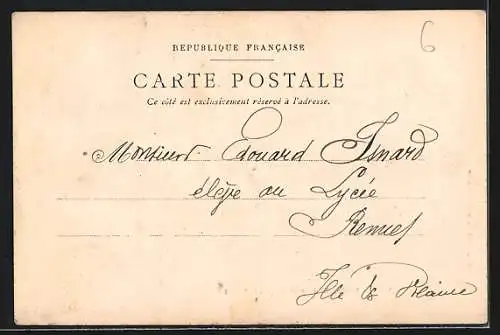 6
REPUBLIQUE FRANÇAISE
CARTE POSTALE
Ce côté est exclusivement réservé à l'adresse.
Monsieur Edouard Isnard
élève au Lycée
Rennes
Ille &